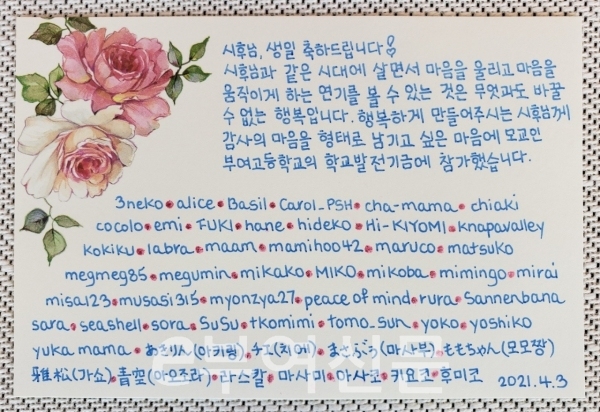 시후님, 생일 축하드립니다!
시후님과 같은 시대에 살면서 마음을 울리고 마음을
움직이게 하는 연기를 볼 수 있는 것은 무엇과도 바꿀
수 없는 행복입니다. 행복하게 만들어주시는 시후님께
감사의 마음을 형태로 남기고 싶은 마음에 모교인
부여고등학교의 학교발전기금에 참가했습니다.
3neko alice Basil Carol_PSH cha-mama chiaki
cocolo emi FUKI hane hideko Hi-KIYOMI knapavalley
kokiku labra maam mamihoo42 maruco matsuko
megmeg85 megumin mikako MIKO mikoba mimingo mirai
misa123 musasi315 myonzya27 peace of mind rura Sannenbana
sara seashell sora SuSu tkomimi tomo_sun yoko yoshiko
yuka mama あきりん(아키링) チエ(치에) まさぶう(마사부) ももちゃん(모모짱)
雅松(가쇼) 青空(아오조라) 라스칼 마사미 아사코 키요코 후미코 2021.4.3
e부여신문